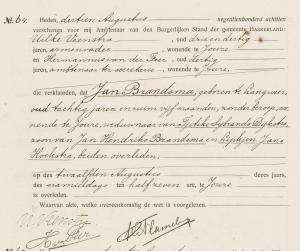 No. 64. Heden, dertien Augustus negentienhonderd achttien
verscheen voor mij Ambtenaar van den Burgerlijken Stand der gemeente HASKERLAND:
Uilke Veenstra, oud drie en dertig
jaren, wonende te Joure
en Hermannus van der Veer, oud dertig
jaren, ambtenaar ter secretarie, wonende te Joure,
die verklaarden, dat Jan Brandsma, geboren te Langweer,
oud tachtig jaren en ruim vijf maanden, zonder beroep, wo-
nende te Joure, weduwnaar van Dijkstra,
zoon van Jan Hendriks Brandsma en Jans
Hoekstra, beiden overleden,
op den twaalfden Augustus dezes jaars,
des namiddags ten half zeven ure, te Joure
is overleden.
Waarvan akte, welke overeenkomstig de wet is voorgelezen.